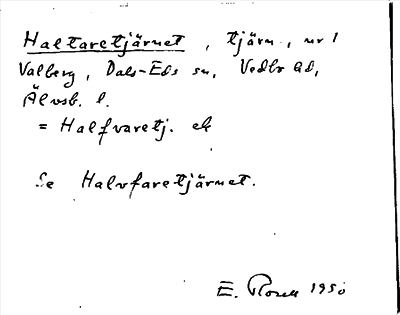 Haltaretjärnet, tjärn, nr 1
Valberg, Dals-Eds sn, Vedbo hd,
Älvsb. l.
= Halfvaretj. ek
Se Halvfaretjärnet.
E. Rosell 1950